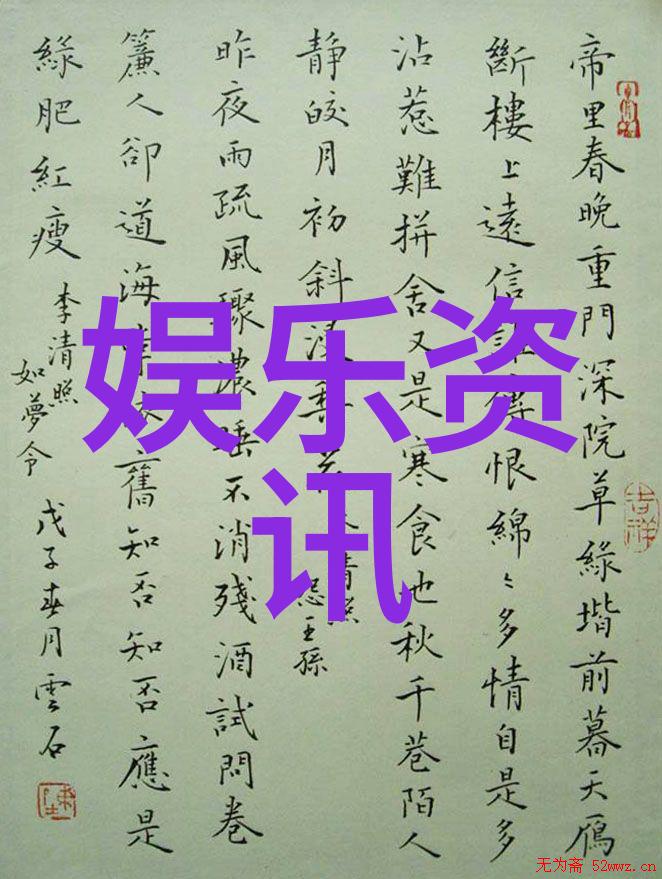 帝里春晚重門深院草緑堦前暮天鴈
斷樓上遠信誰傳恨綿々多情自是多
沾惹難拼舍又是寒食也秋千巷陌人
静皎月初斜浸梨花
清照
怨王孫
昨夜雨疏風驟濃睡不消残酒試問卷
簾人卻道海棠依舊知否知否應是
緑肥紅瘦
李清照
如夢令
戊子春月雲石
吉祥
娱乐资
讯
无为斋 52wwz.cn